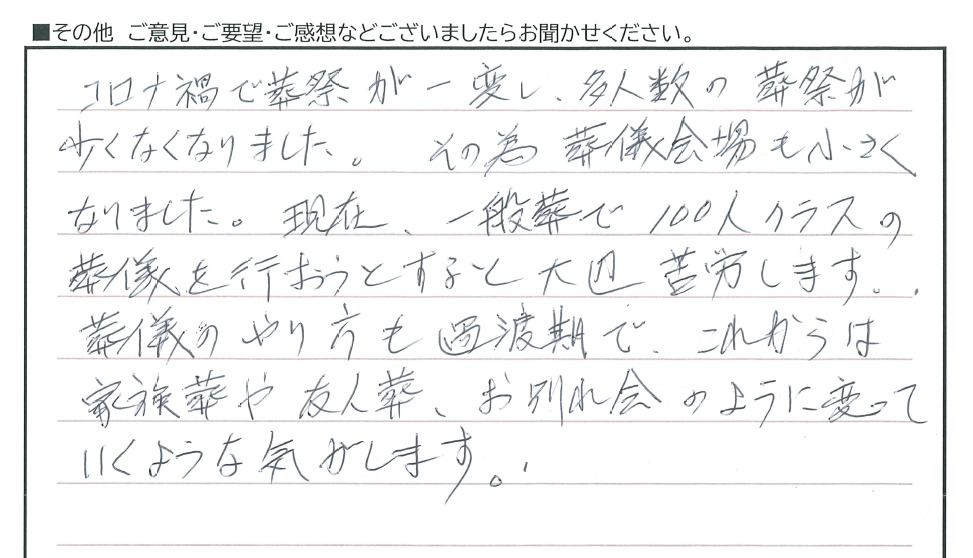 ■その他 ご意見・ご要望・ご感想などございましたらお聞かせください。
コロナ禍で葬祭が一変し、多人数の葬祭が
少くなくなりました。その為葬儀会場も小さく
なりました。現在、一般葬で100人クラスの
葬儀を行おうとすると大辺苦労します。
葬儀のやり方も過渡期で、これからは
家族葬や友人葬、お別れ会のように変って
いくような気がします。